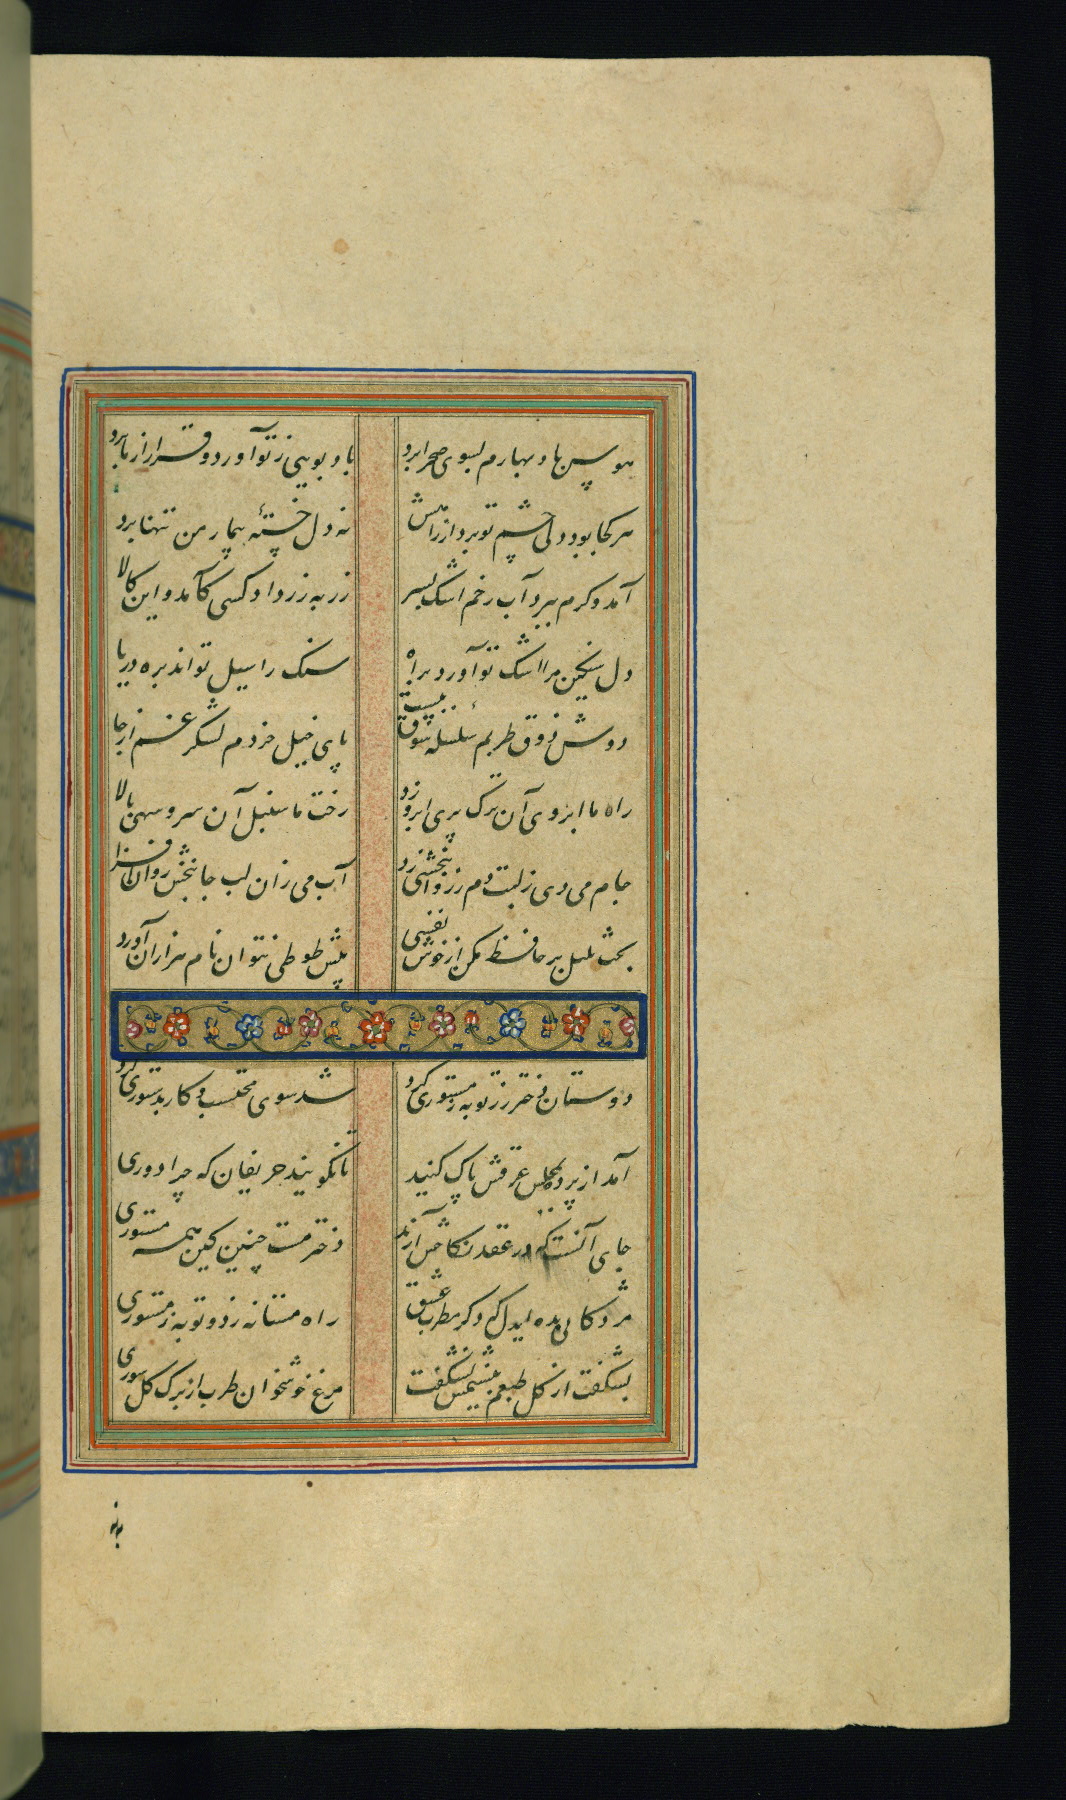 هوس باد بهارم بسوی صحرا برد
باد بوییی ز تو آورد و قرار از ما برد
هر کجا بود دلی چشم تو برد از راهش
نه دل خستهٔ بیمار من تنها برد
آمد و کرم ببرد آب رخم اشک بسر
زر به زر داد کسی کآمد و این کالا
دل سنکین مرا اشک تو آورد براه
سنک را سیل تواند بره دریا
دوش ذوق طربم سلسله شوق ببست
پای خیل خردم لشکر غم از جا
راه ما ابروی آن ترک پری ابرو زد
رخت ما سنبل آن سرو سهی بالا
جام می دی ز لبت دم ز روانبخشی زد
آب می زان لب جانبخش روان افزا
بحث بلبل بر حافظ مکن از خوش نفسی
پیش طوطی نتوان نام هزاران آورد
دوستان دختر رز توبه ز مستوری کرد
شد سوی محتسب و کار بدستوری کرد
آمد از پرده بمجلس عرقش پاک کنید
تا نکویند حریفان که چرا دوری
جای آنست که در عقد نکاحش آرند
دختر مست چنین کین همه مستوری
مژدکانی بده ایدل که دکر مطرب عشق
راه مستانه زد و توبه ز مستوری
بشکفت از کل طبعم بنسیمش بشکفت
مرغ خوشخوان طرب از برک کل سوری
نه